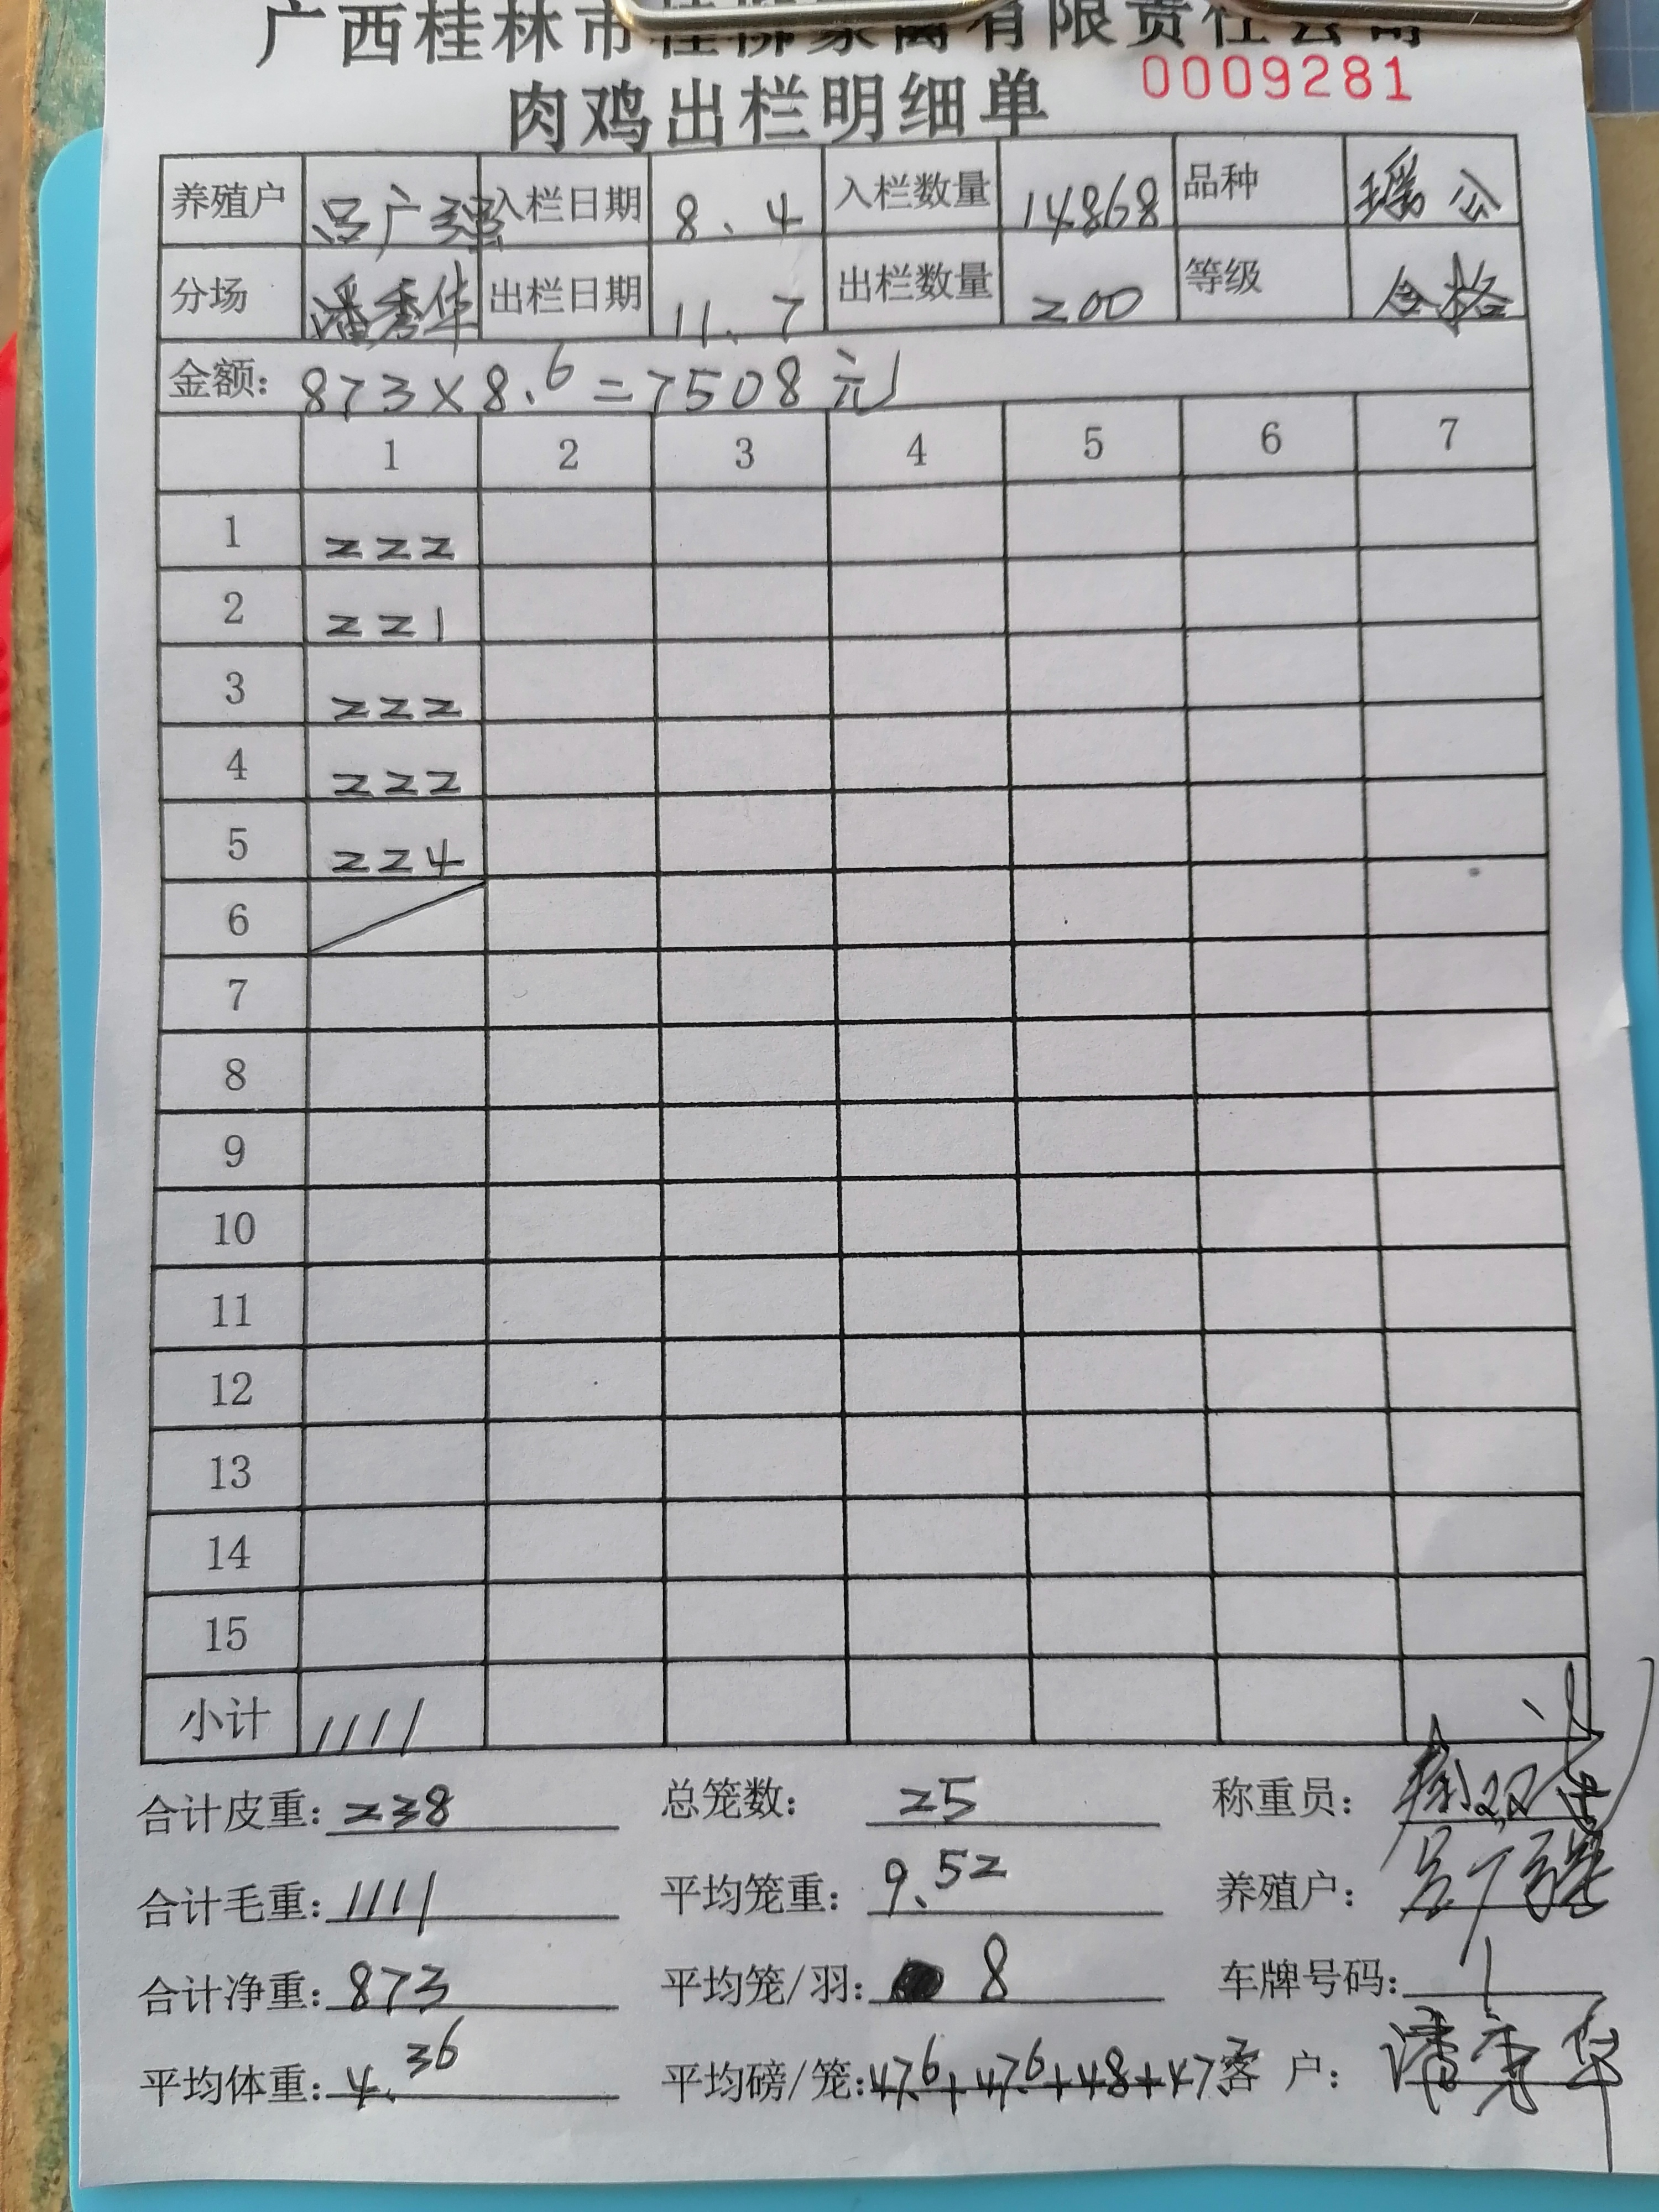 广西桂林市桂柳家禽有限责任公司
肉鸡出栏明细单 0009281
养殖户 吕广强 入栏日期 8.4 入栏数量 14868 品种 瑶公
分场 潘秀华 出栏日期 11.7 出栏数量 200 等级 合格
金额: 873×8.6=7508元
1 2 3 4 5 6 7
1 222
2 221
3 222
4 222
5 224
6
7
8
9
10
11
12
13
14
15
小计 1111
合计皮重: 238 总笼数: 25 称重员:
合计毛重: 1111 平均笼重: 9.52 养殖户: 吕广强
合计净重: 873 平均笼/羽: 8 车牌号码:
平均体重: 4.36 平均磅/笼: 47.6+47.6+48+47.2 客户: 潘秀华